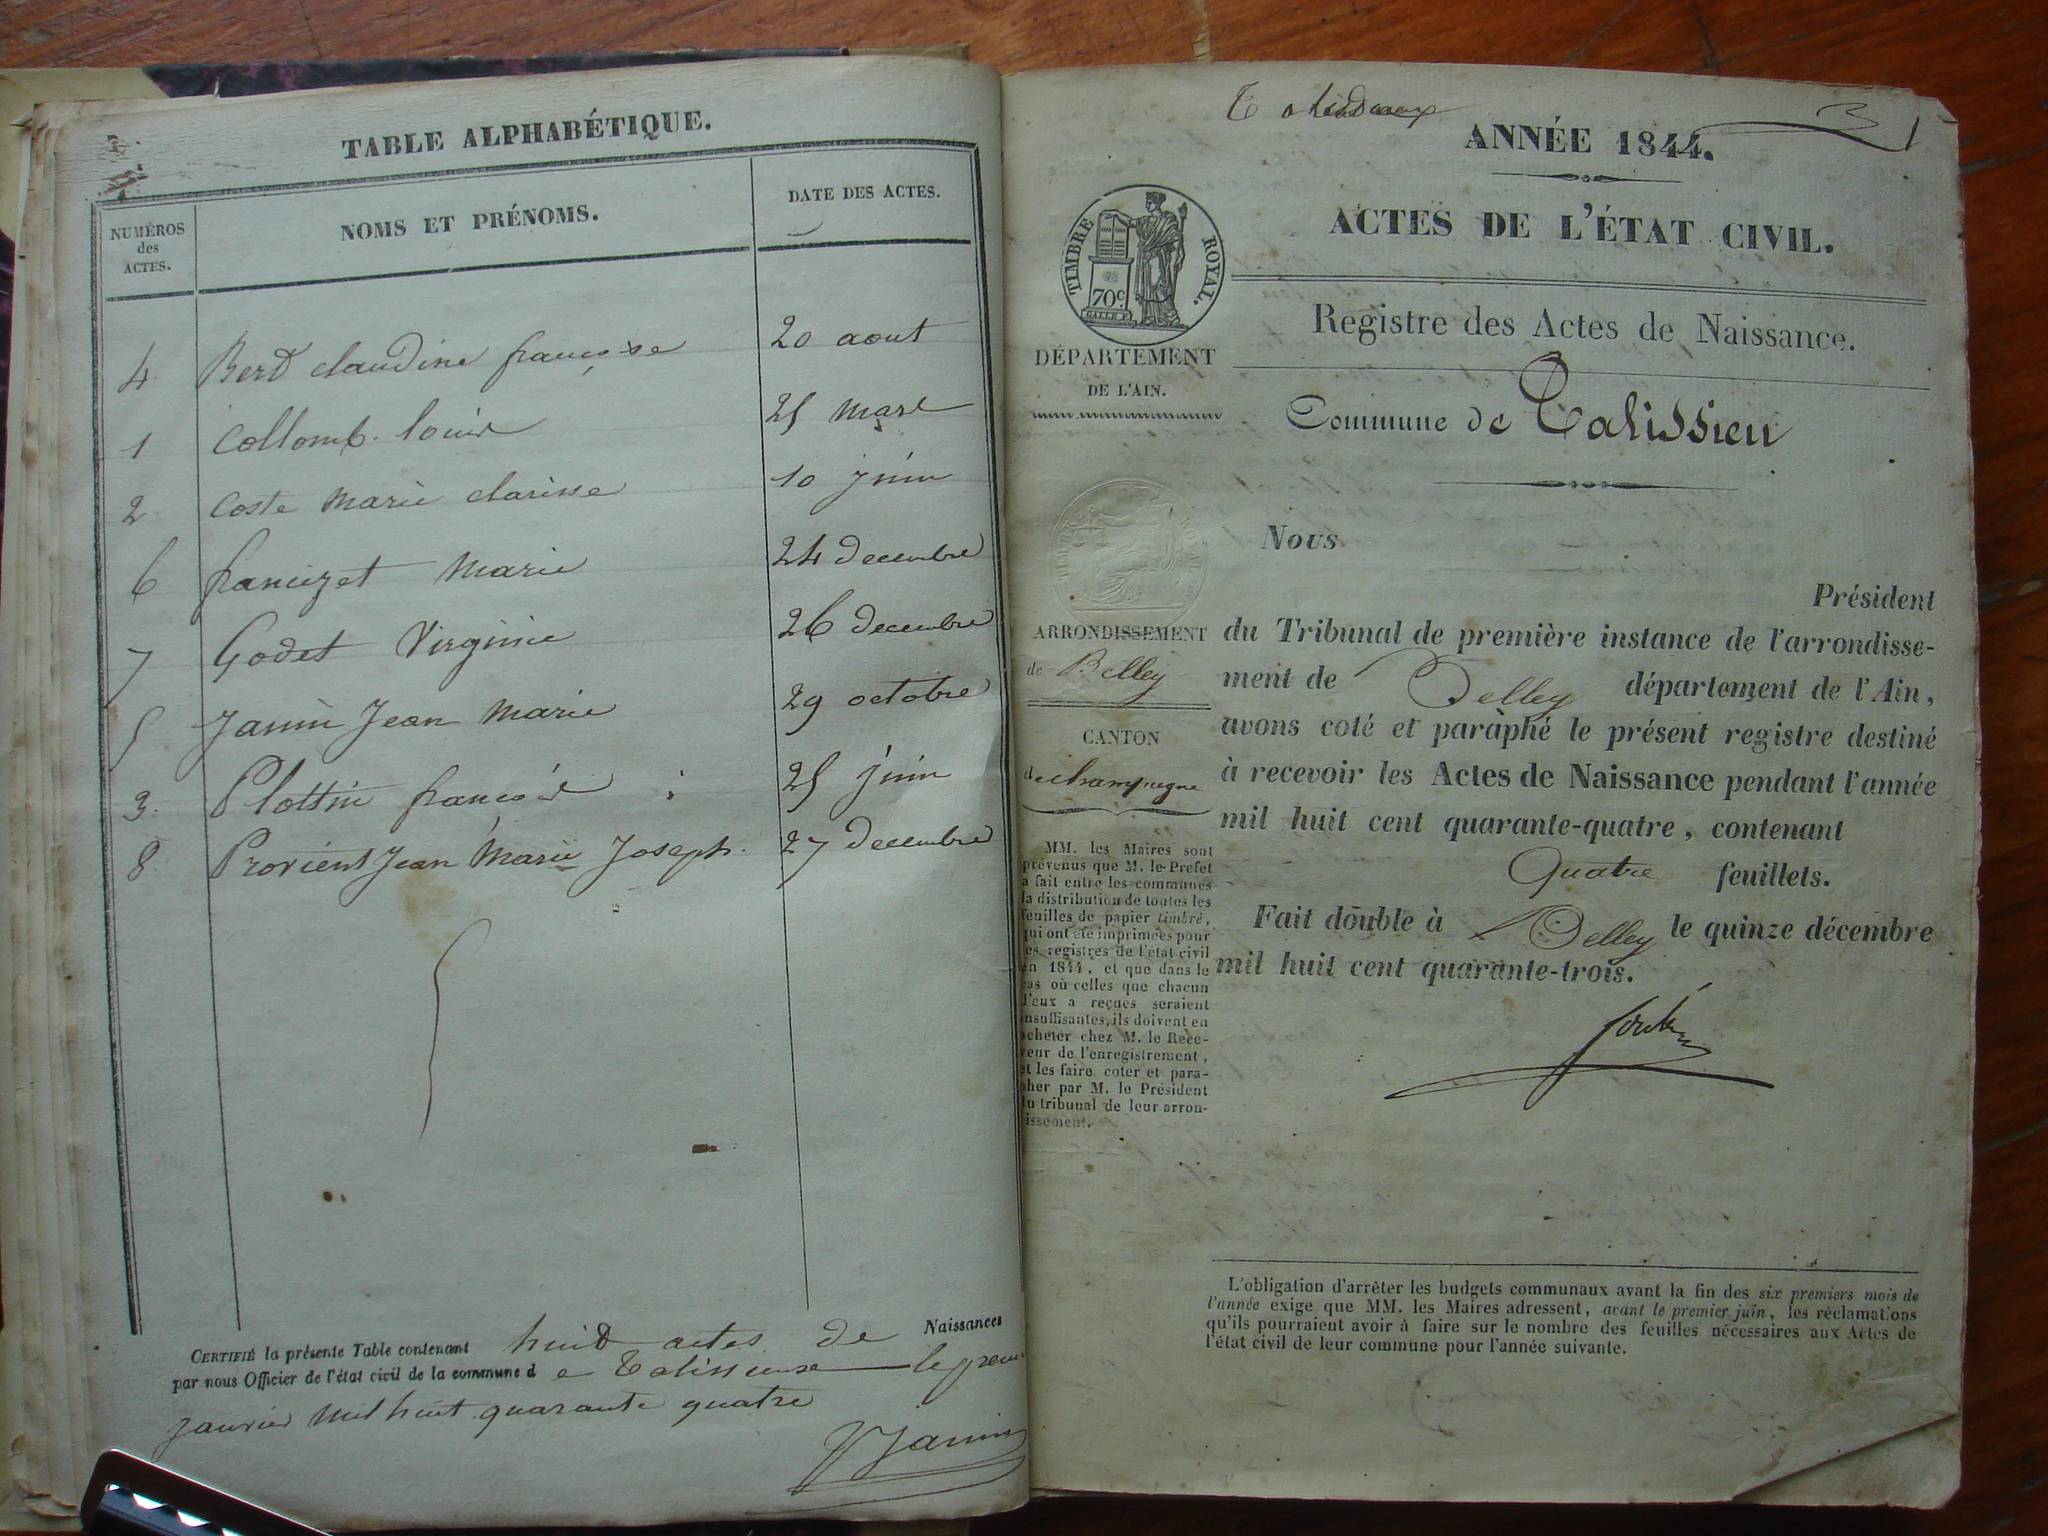 TABLE ALPHABÉTIQUE.
NUMÉROS
des
ACTES.
NOMS ET PRÉNOMS.
DATE DES ACTES.
4 Berd claudine françoise 20 aout
1 Collomb louis 25 mars
2 Coste marie clarisse 10 juin
6 francizet marie 24 decembre
7 Godet Virginie 26 decembre
5 Janin Jean marie 29 octobre
3 Plottin françois 25 juin
8 Provient Jean Marie Joseph 27 decembre
CERTIFIÉ la présente Table contenant huit actes de Naissances
par nous Officier de l'état civil de la commune de le
janvier mil huit quarante quatre
Janin
ANNÉE 1844.
ACTES DE L'ÉTAT CIVIL.
TIMBRE ROYAL.
70c
Registre des Actes de Naissance.
DÉPARTEMENT
DE L'AIN.
Commune de Talissieu
Nous
Président
du Tribunal de première instance de l'arrondisse-
ment de Belley département de l'Ain,
avons coté et paraphé le présent registre destiné
à recevoir les Actes de Naissance pendant l'année
mil huit cent quarante-quatre, contenant
Quatre feuillets.
Fait double à Belley le quinze décembre
mil huit cent quarante-trois.
ARRONDISSEMENT
de Belley
CANTON
de champagne
MM. les Maires sont
prévenus que M. le Prefet
a fait entre les communes
la distribution de toutes les
feuilles de papier timbré,
qui ont été imprimées pour
les registres de l'état civil
en 1844, et que dans le
cas où celles que chacun
d'eux a reçues seraient
insuffisantes, ils doivent en
acheter chez M. le Rece-
veur de l'enregistrement,
et les faire coter et para-
pher par M. le Président
du tribunal de leur arron-
issement.
L'obligation d'arrêter les budgets communaux avant la fin des six premiers mois de
l'année exige que MM. les Maires adressent, avant le premier juin, les réclamations
qu'ils pourraient avoir à faire sur le nombre des feuilles nécessaires aux Actes de
l'état civil de leur commune pour l'année suivante.